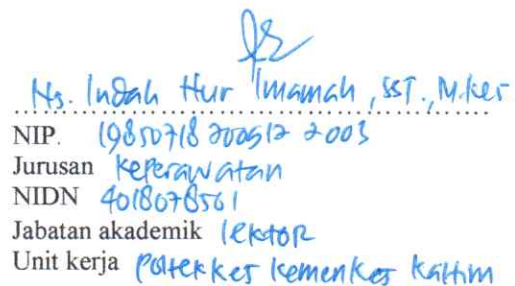 Ns. Indah Nur Imamah, SST., M.Kes
NIP. 19850718 200512 2003
Jurusan Keperawatan
NIDN 4018078501
Jabatan akademik lektor
Unit kerja Poltekkes Kemenkes Kaltim